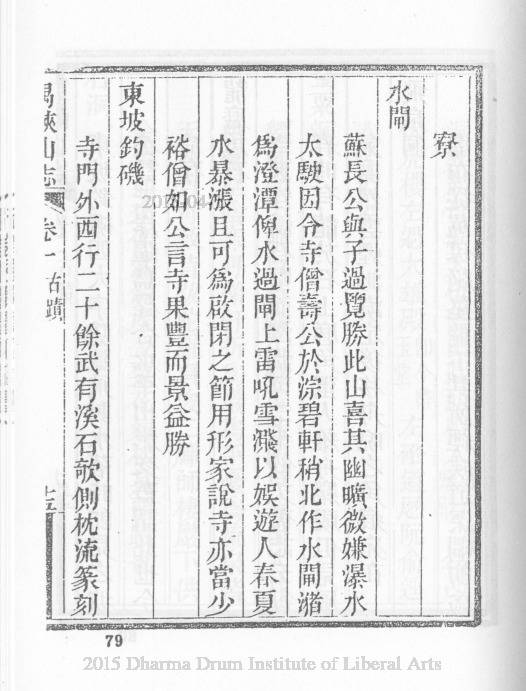 寮
水閘
蘇長公與子過覽勝此山喜其幽曠微嫌瀑水
太駛因令寺僧壽公於淙碧軒稍北作水閘瀦
為澄潭俾水過閘上雷吼雪濺以娛遊人春夏
水暴漲且可為啟閉之節用形家說寺亦當少
裕僧如公言寺果豐而景益勝
東坡釣磯
寺門外西行二十餘武有溪石欹側枕流篆刻
禺峽山志 卷一 古蹟 十五
79
2015 Dharma Drum Institute of Liberal Arts